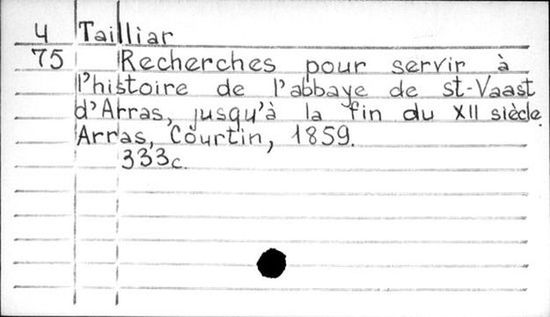 4 Tailliar
75 Recherches pour servir à
l'histoire de l'abbaye de st-Vaast
d'Arras, jusqu'à la fin du XII siècle.
Arras, Courtin, 1859.
333c.